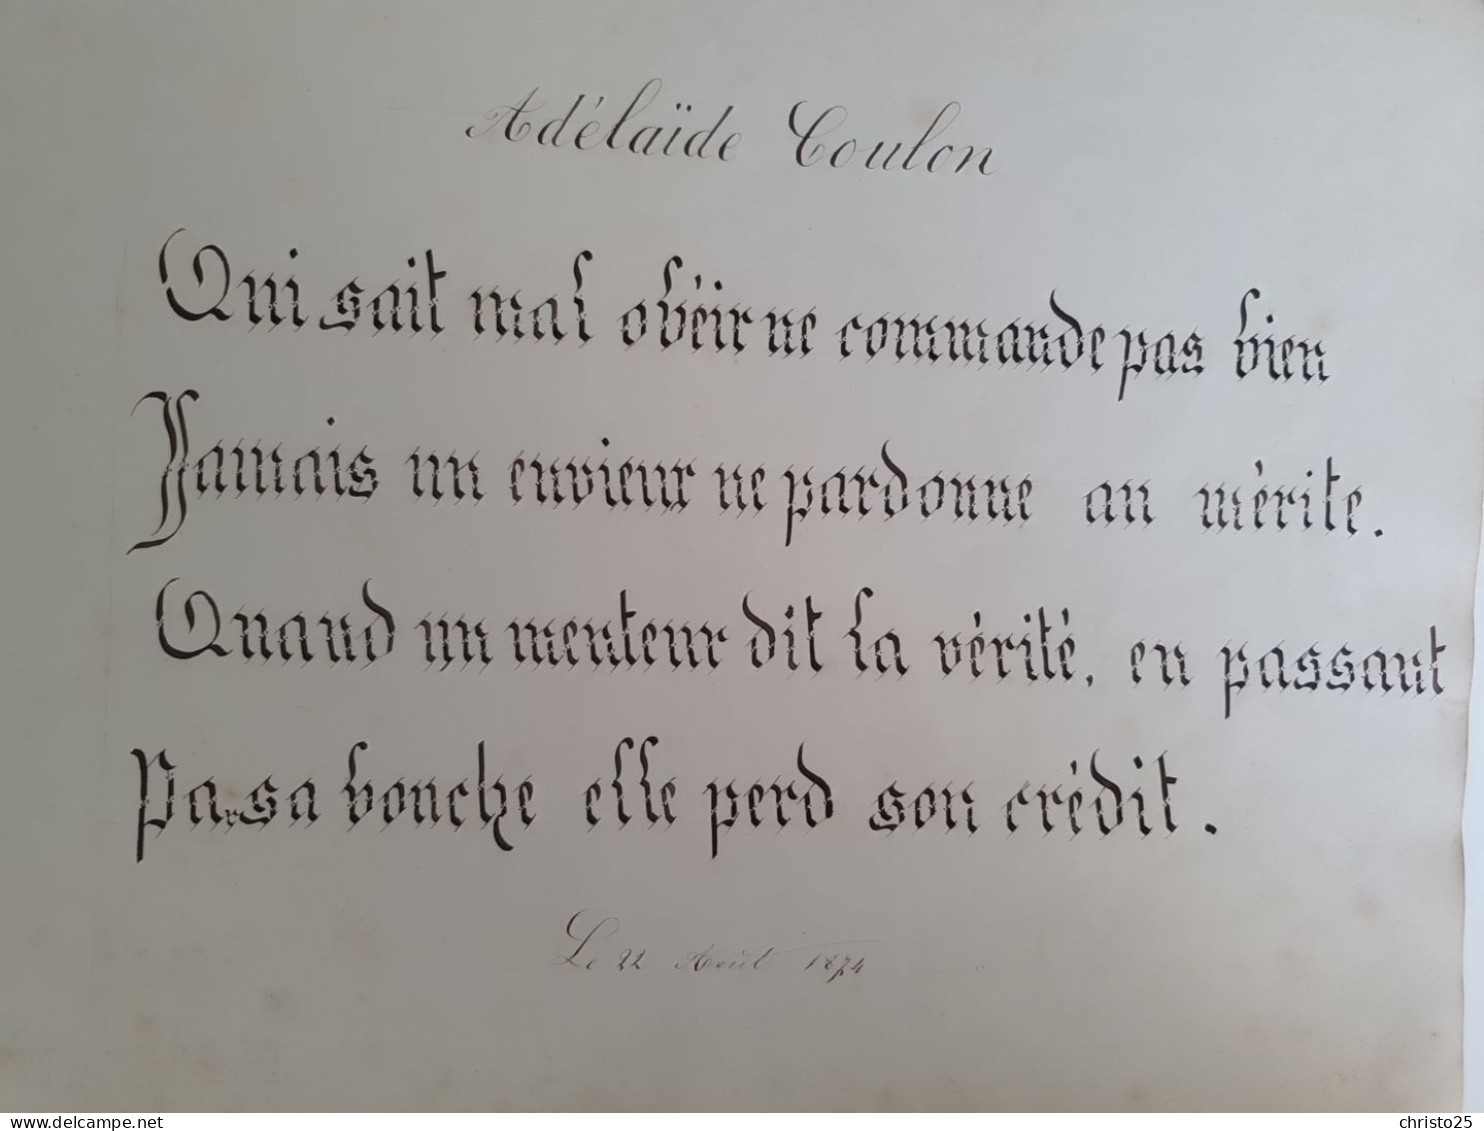 Adélaïde Coulon
Qui sait mal obéir ne commande pas bien
Jamais un envieux ne pardonne au mérite.
Quand un menteur dit la vérité, en passant
Pa. sa bouche elle perd son crédit.
Le 22 Août 1874
www.delcampe.net
christo25